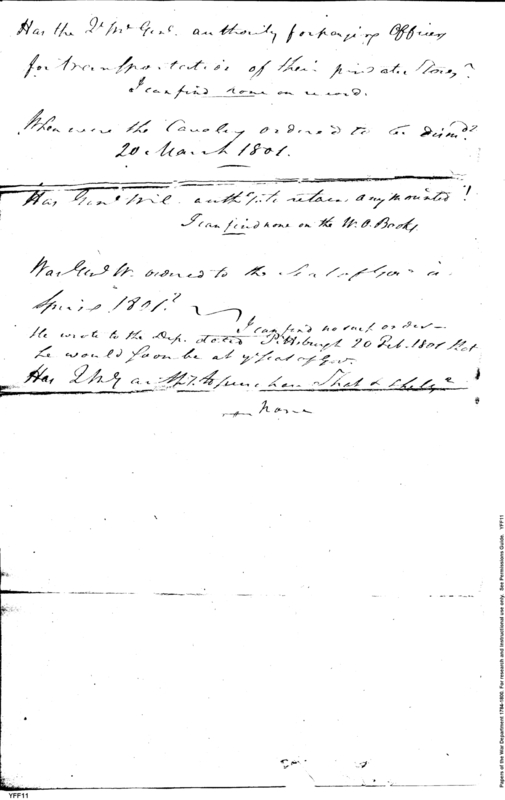 Has the Qr Mr Genl. authority for paying Officers
for transportation of their private Stores?
I can find none on record.
When were the Cavalry ordered to be dismd?
20 March 1801.
Has Genl Wil. authy to retain any mounted?
I can find none on the W.O. Books
Was Genl W. ordered to the Seat of Govr in
Spring 1801?
I can find no such order—
He wrote to the Dep. dated Pittsburgh 20 Feb. 1801 that
he would soon be at ye Seat of Gov.
Has QMG authy to purchase
None
YFF11
Papers of the War Department 1784-1800. For research and instructional use only. See Permissions Guide. YFF11